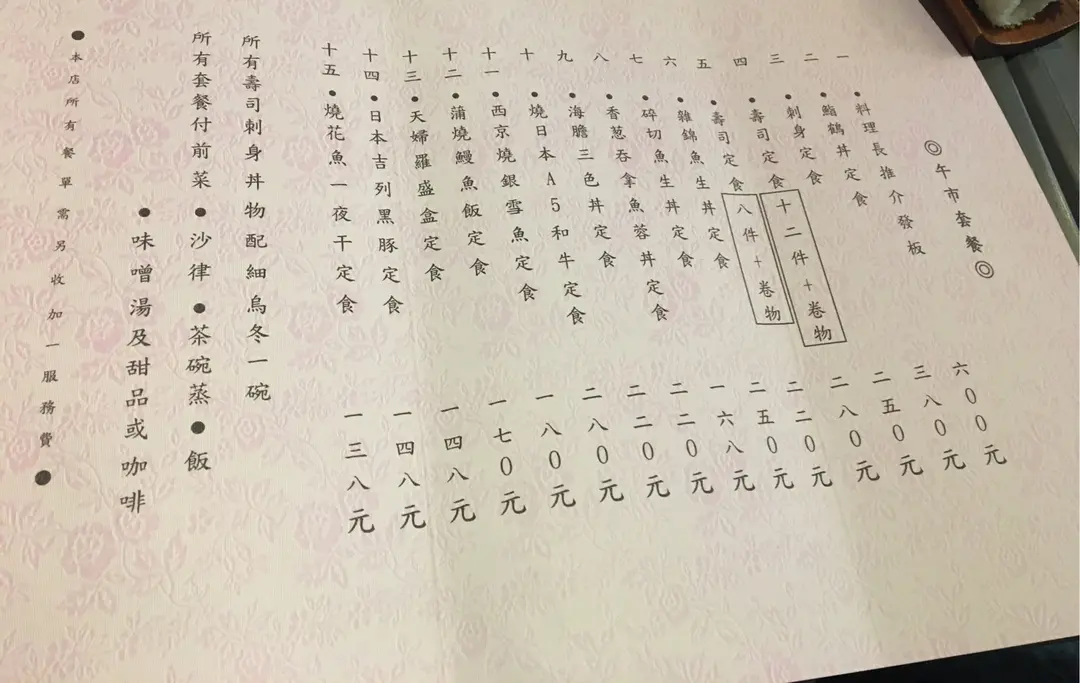 ◎午市套餐◎
一 ●料理長推介發板 六00元
二 ●鮨鶴丼定食 三八0元
三 ●刺身定食 二五0元
四 ●壽司定食 十二件+卷物 二八0元
五 ●壽司定食 八件+卷物 二二0元
六 ●雜錦魚生丼定食 二五0元
七 ●碎切魚生丼定食 一六八元
八 ●香葱吞拿魚蓉丼定食 二二0元
九 ●海膽三色丼定食 二二0元
十 ●燒日本A5和牛定食 二八0元
十一 ●西京燒銀雪魚定食 一八0元
十二 ●蒲燒鰻魚飯定食 一七0元
十三 ●天婦羅盛盒定食 一四八元
十四 ●日本吉列黑豚定食 一四八元
十五 ●燒花魚一夜干定食 一三八元
所有壽司刺身丼物配細烏冬一碗
所有套餐付前菜●沙律●茶碗蒸●飯
●味噌湯及甜品或咖啡
●本店所有餐單需另收加一服務費●